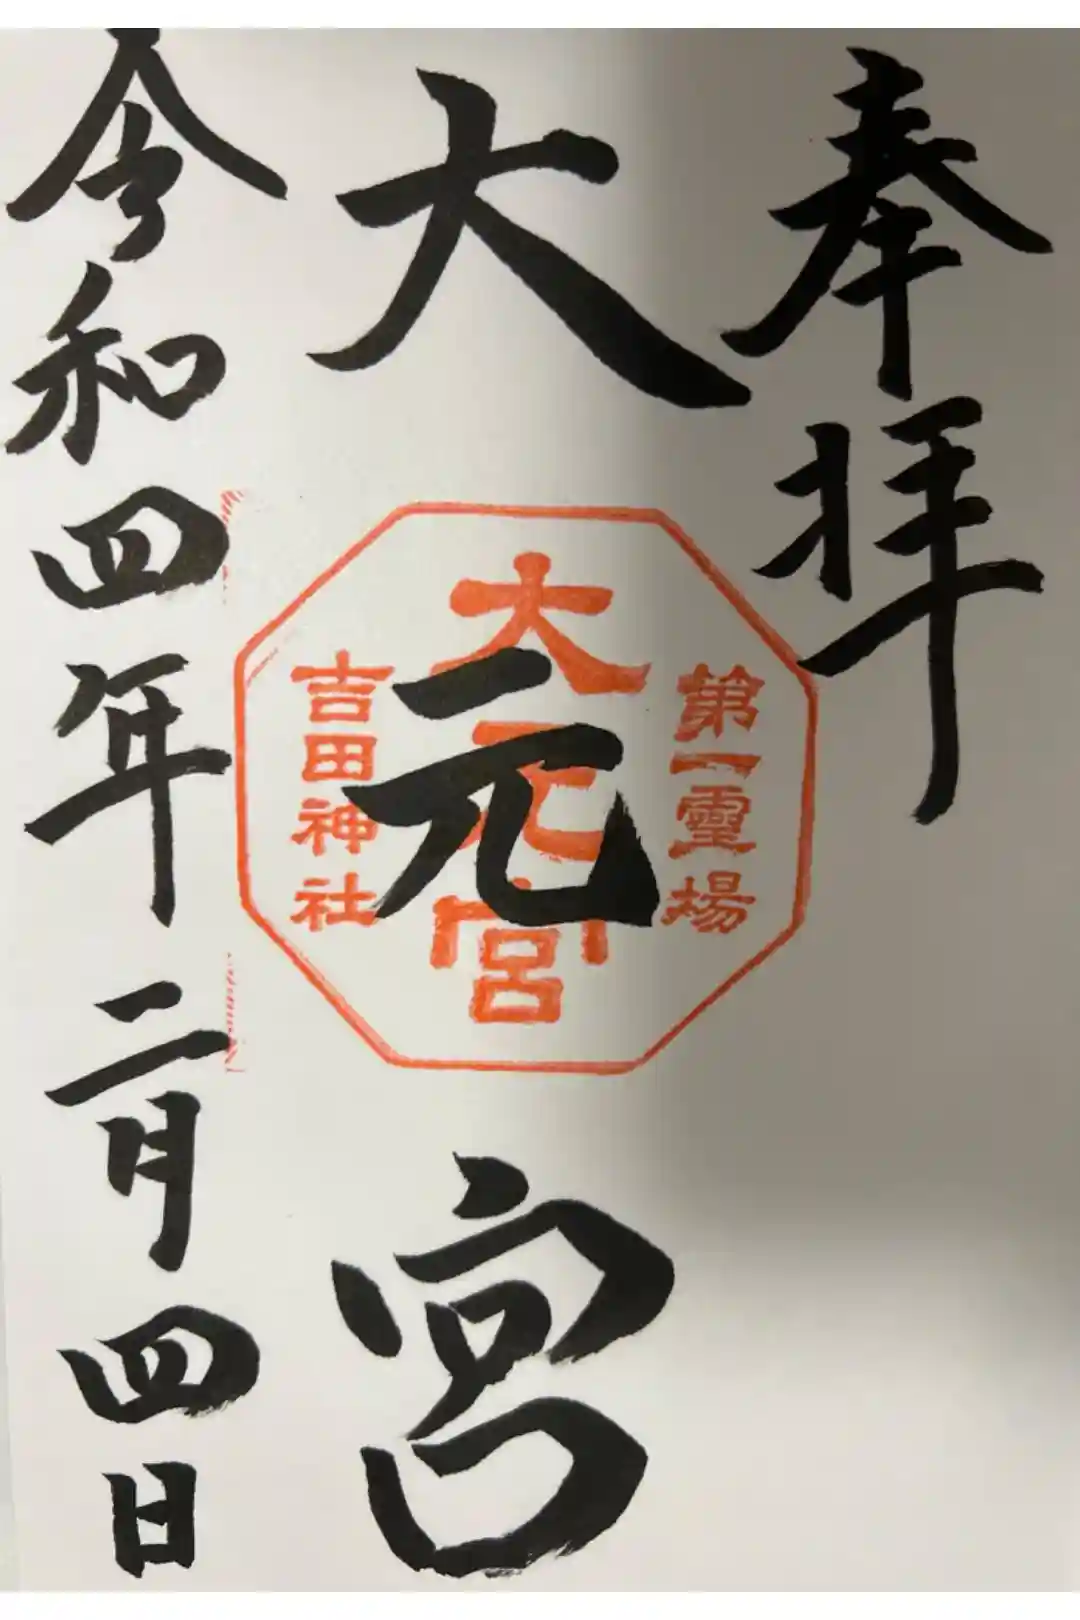 奉拝
大元宮
第一霊場
大元宮
吉田神社
令和四年二月四日